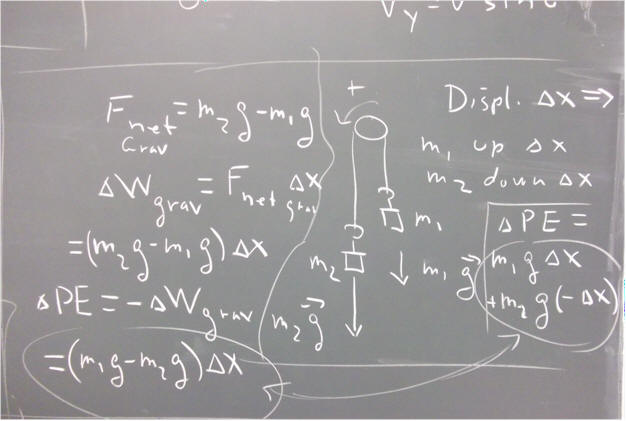 V_y = V sin θ
F_net Grav = m₂g - m₁g
ΔW_grav = F_net grav Δx
=(m₂g - m₁g) Δx
ΔPE = -ΔW_grav
=(m₁g - m₂g) Δx
+
m₁
m₂
m₁g⃗
m₂g⃗
Displ. Δx ⇒
m₁ up Δx
m₂ down Δx
ΔPE =
m₁g Δx
+m₂g(-Δx)